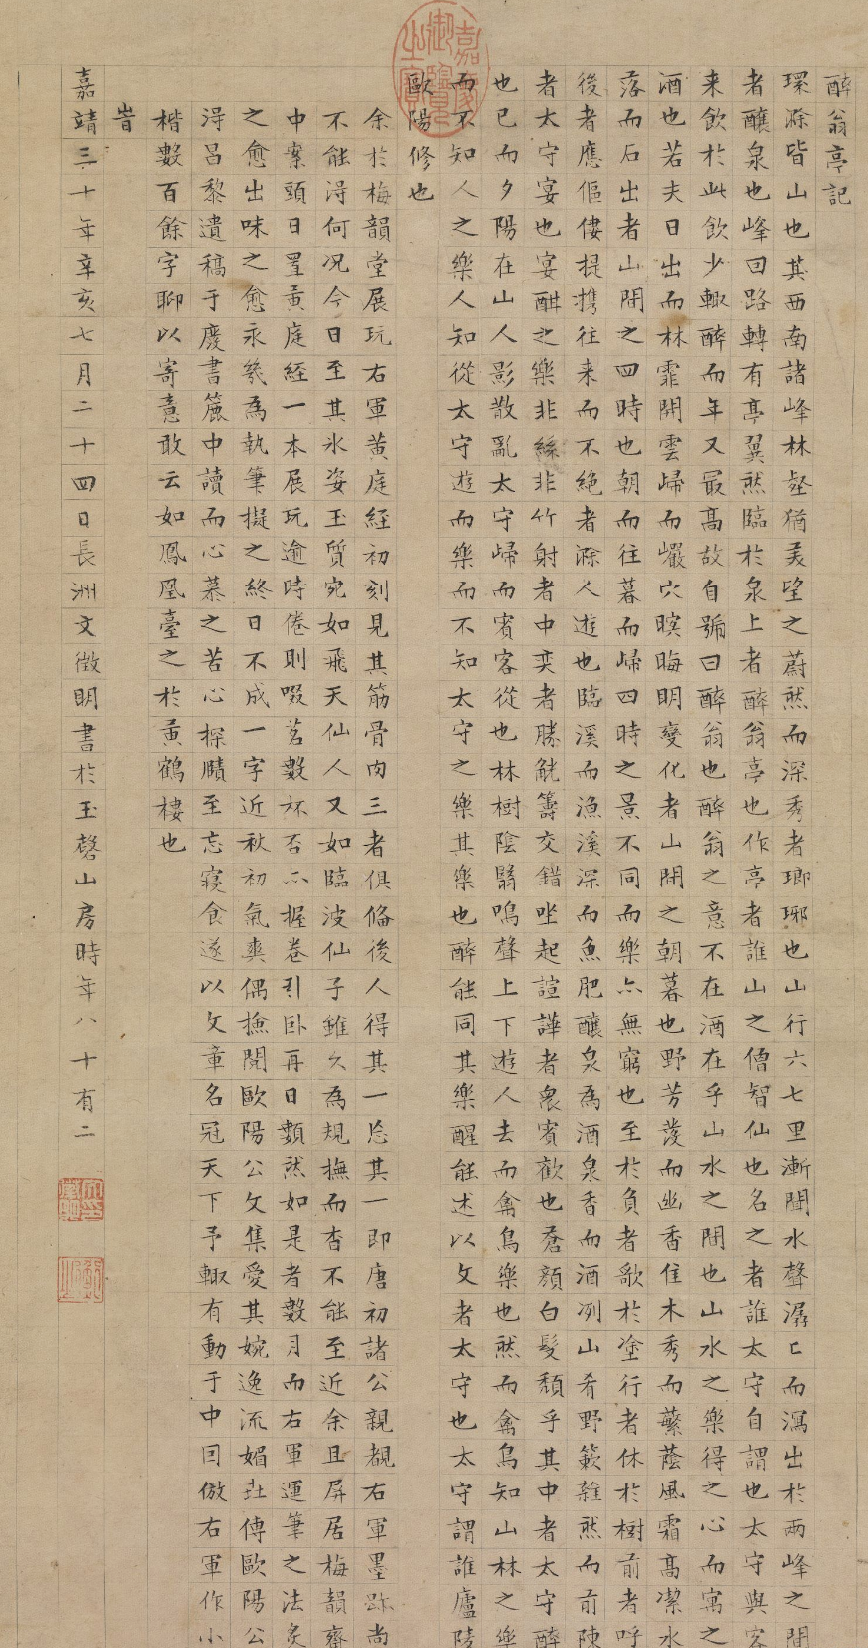 醉翁亭記
環滁皆山也其西南諸峰林壑猶美望之蔚然而深秀者瑯琊也山行六七里漸聞水聲潺〻而瀉出於兩峰之間
者釀泉也峰回路轉有亭翼然臨於泉上者醉翁亭也作亭者誰山之僧智仙也名之者誰太守自謂也太守與客
来飲於此飲少輒醉而年又最高故自號曰醉翁也醉翁之意不在酒在乎山水之間也山水之樂得之心而寓之
酒也若夫日出而林霏開雲歸而巖穴暝晦明變化者山間之朝暮也野芳發而幽香佳木秀而蘩蔭風霜高潔水
落而石出者山間之四時也朝而往暮而歸四時之景不同而樂亦無窮也至於負者歌於塗行者休於樹前者呼
後者應傴僂提携往来而不絶者滁人遊也臨溪而漁溪深而魚肥釀泉為酒泉香而酒冽山肴野蔌雜然而前陳
者太守宴也宴酣之樂非絲非竹射者中奕者勝觥籌交錯坐起諠譁者衆賓歡也蒼顏白髮頹乎其中者太守醉
也已而夕陽在山人影散亂太守歸而賓客從也林樹陰翳鳴聲上下遊人去而禽鳥樂也然而禽鳥知山林之樂
而不知人之樂人知從太守遊而樂而不知太守之樂其樂也醉能同其樂醒能述以文者太守也太守謂誰廬陵
歐陽修也
余於梅韻堂展玩右軍黄庭經初刻見其筋骨肉三者俱備後人得其一忘其一即唐初諸公親覩右軍墨跡尚
不能淂何况今日至其氷姿玉質宛如飛天仙人又如臨波仙子雖久為規撫而杳不能至近余且屏居梅韻齋
中案頭日置黄庭經一本展玩逾時倦則啜茗數杯否亦握卷引卧再日對然如是者數月而右軍運筆之法炙
之愈出味之愈永幾為執筆擬之終日不成一字近秋初氣爽偶撿閱歐陽公文集愛其婉逸流媚世傳歐陽公
淂昌黎遺稿于廢書簏中讀而心慕之苦心探賾至忘寢食遂以文章名冠天下予輒有動于中囙倣右軍作小
楷數百餘字聊以寄意敢云如鳳凰臺之於黄鶴樓也
旹
嘉靖三十年辛亥七月二十四日長洲文徵明書於玉磬山房時年八十有二